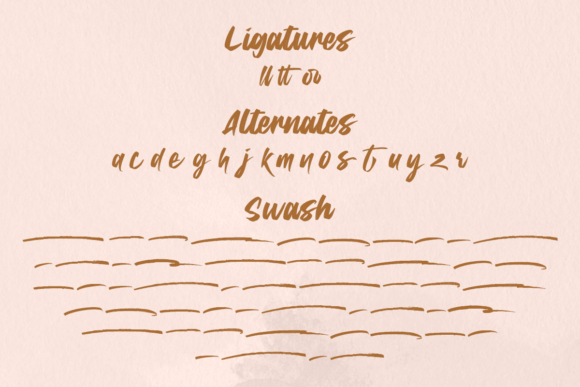 Ligatures
ll tt oo
Alternates
a c d e g h j k m n o s t u y z r
Swash